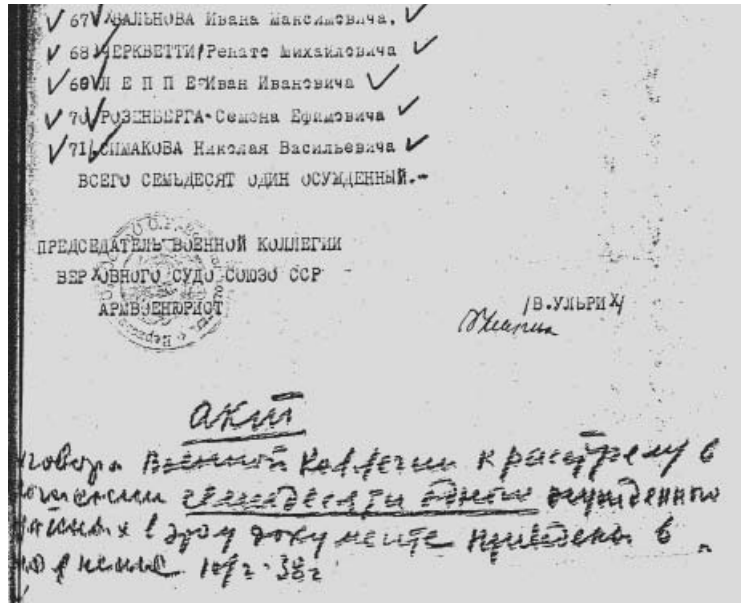 67 ХВАЛЬНОВА Ивана Максимовича,
68 ЧЕРКВЕТТИ Ренато Михайловича
69 Л Е П П Е Иван Ивановича
70 РОЗЕНБЕРГА Семена Ефимовича
71. СИМАКОВА Николая Васильевича
ВСЕГО СЕМЬДЕСЯТ ОДИН ОСУЖДЕННЫЙ.-
ПРЕДСЕДАТЕЛЬ ВОЕННОЙ КОЛЛЕГИИ
ВЕРХОВНОГО СУДО СОЮЗО ССР
АРМВОЕНЮРИСТ
/В.УЛЬРИХ/
акт
говора Военной Коллегии к расстрелу в
ношении семидесяти одного осужденно
занных в этом документе приведены в